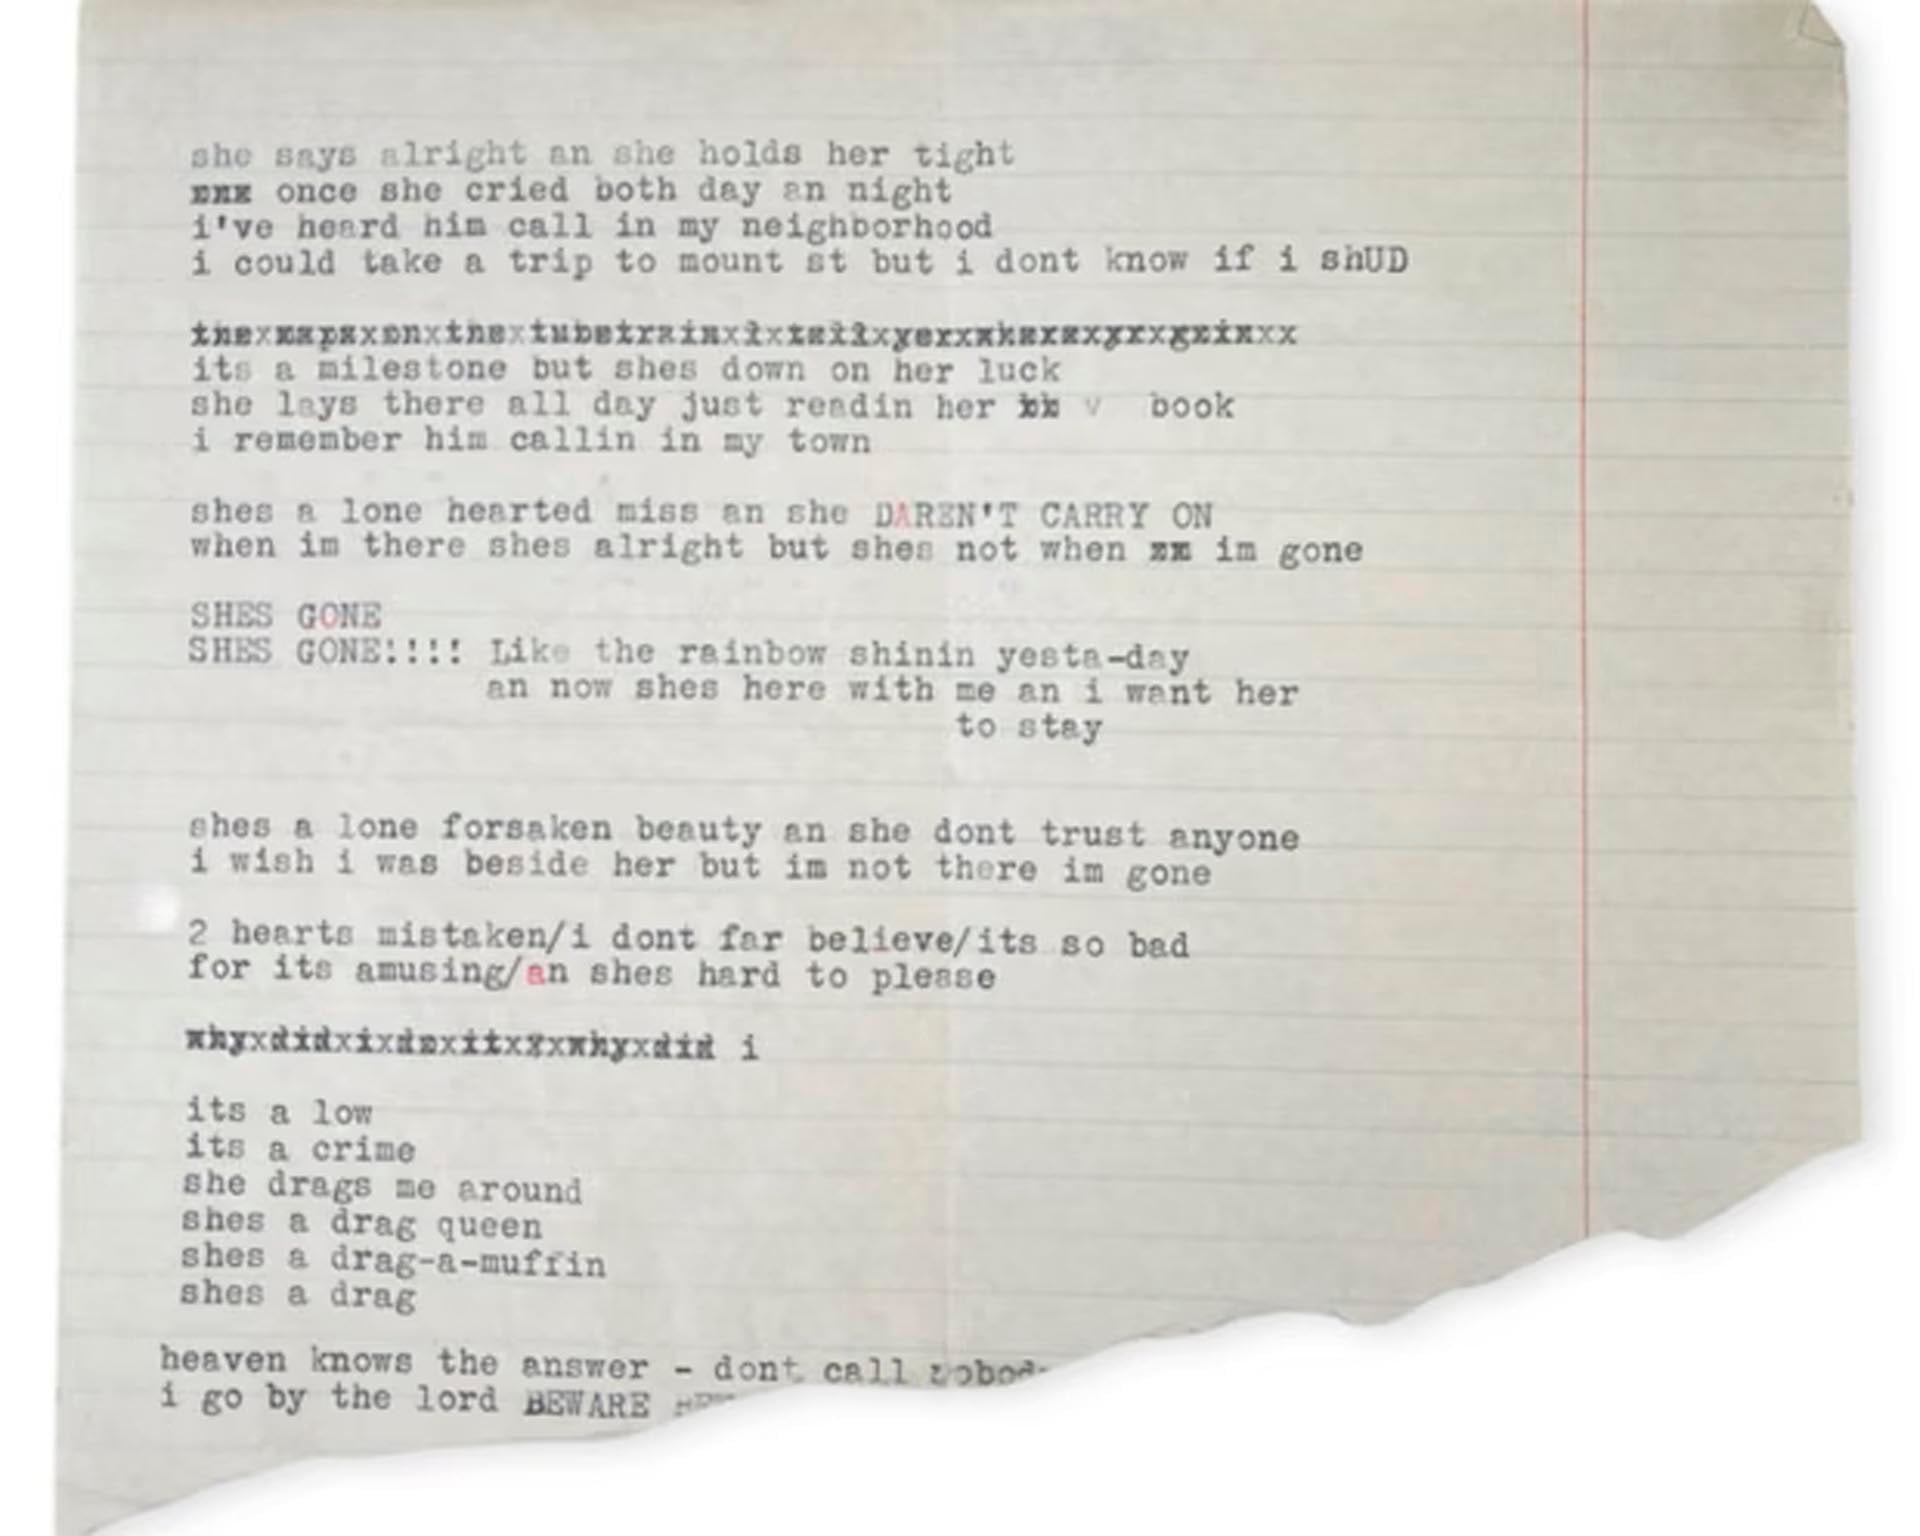 she says alright an she holds her tight
once she cried both day an night
i've heard him call in my neighborhood
i could take a trip to mount st but i dont know if i shUD
its a milestone but shes down on her luck
she lays there all day just readin her v book
i remember him callin in my town
shes a lone hearted miss an she DAREN'T CARRY ON
when im there shes alright but shes not when im gone
SHES GONE
SHES GONE!!!! Like the rainbow shinin yesta-day
an now shes here with me an i want her
to stay
shes a lone forsaken beauty an she dont trust anyone
i wish i was beside her but im not there im gone
2 hearts mistaken/i dont far believe/its so bad
for its amusing/an shes hard to please
whyxdidxixdoxitx?xwhyxdid i
its a low
its a crime
she drags me around
shes a drag queen
shes a drag-a-muffin
shes a drag
heaven knows the answer - dont call
i go by the lord BEWARE